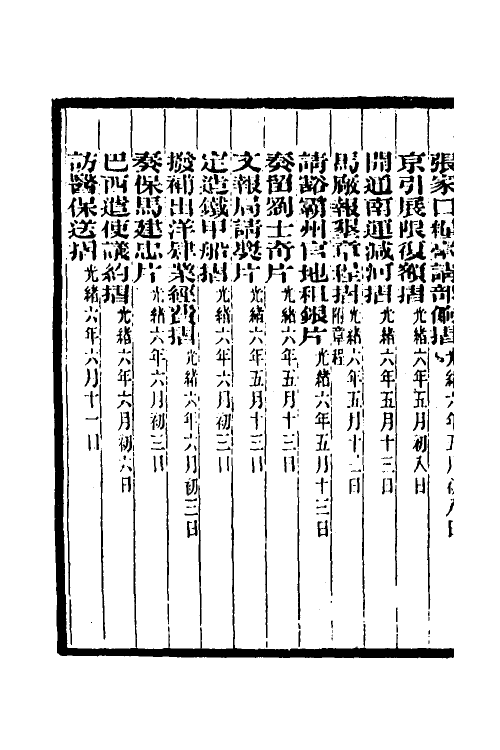 張家口稅
京引展限復額摺光緒六年五月初八日
開通南運減河摺光緒六年五月十三日
馬廠報墾章程摺附章程光緒六年五月十三日
請豁霸州官地租銀片光緒六年五月十三日
奏留劉士奇片光緒六年五月十三日
文報局請獎片光緒六年五月十三日
定造鐵甲船摺光緒六年六月初三日
撥補出洋肄業經費摺光緒六年六月初三日
奏保馬建忠片光緒六年六月初三日
巴西遣使議約摺光緒六年六月初六日
訪醫保送摺光緒六年六月十一日